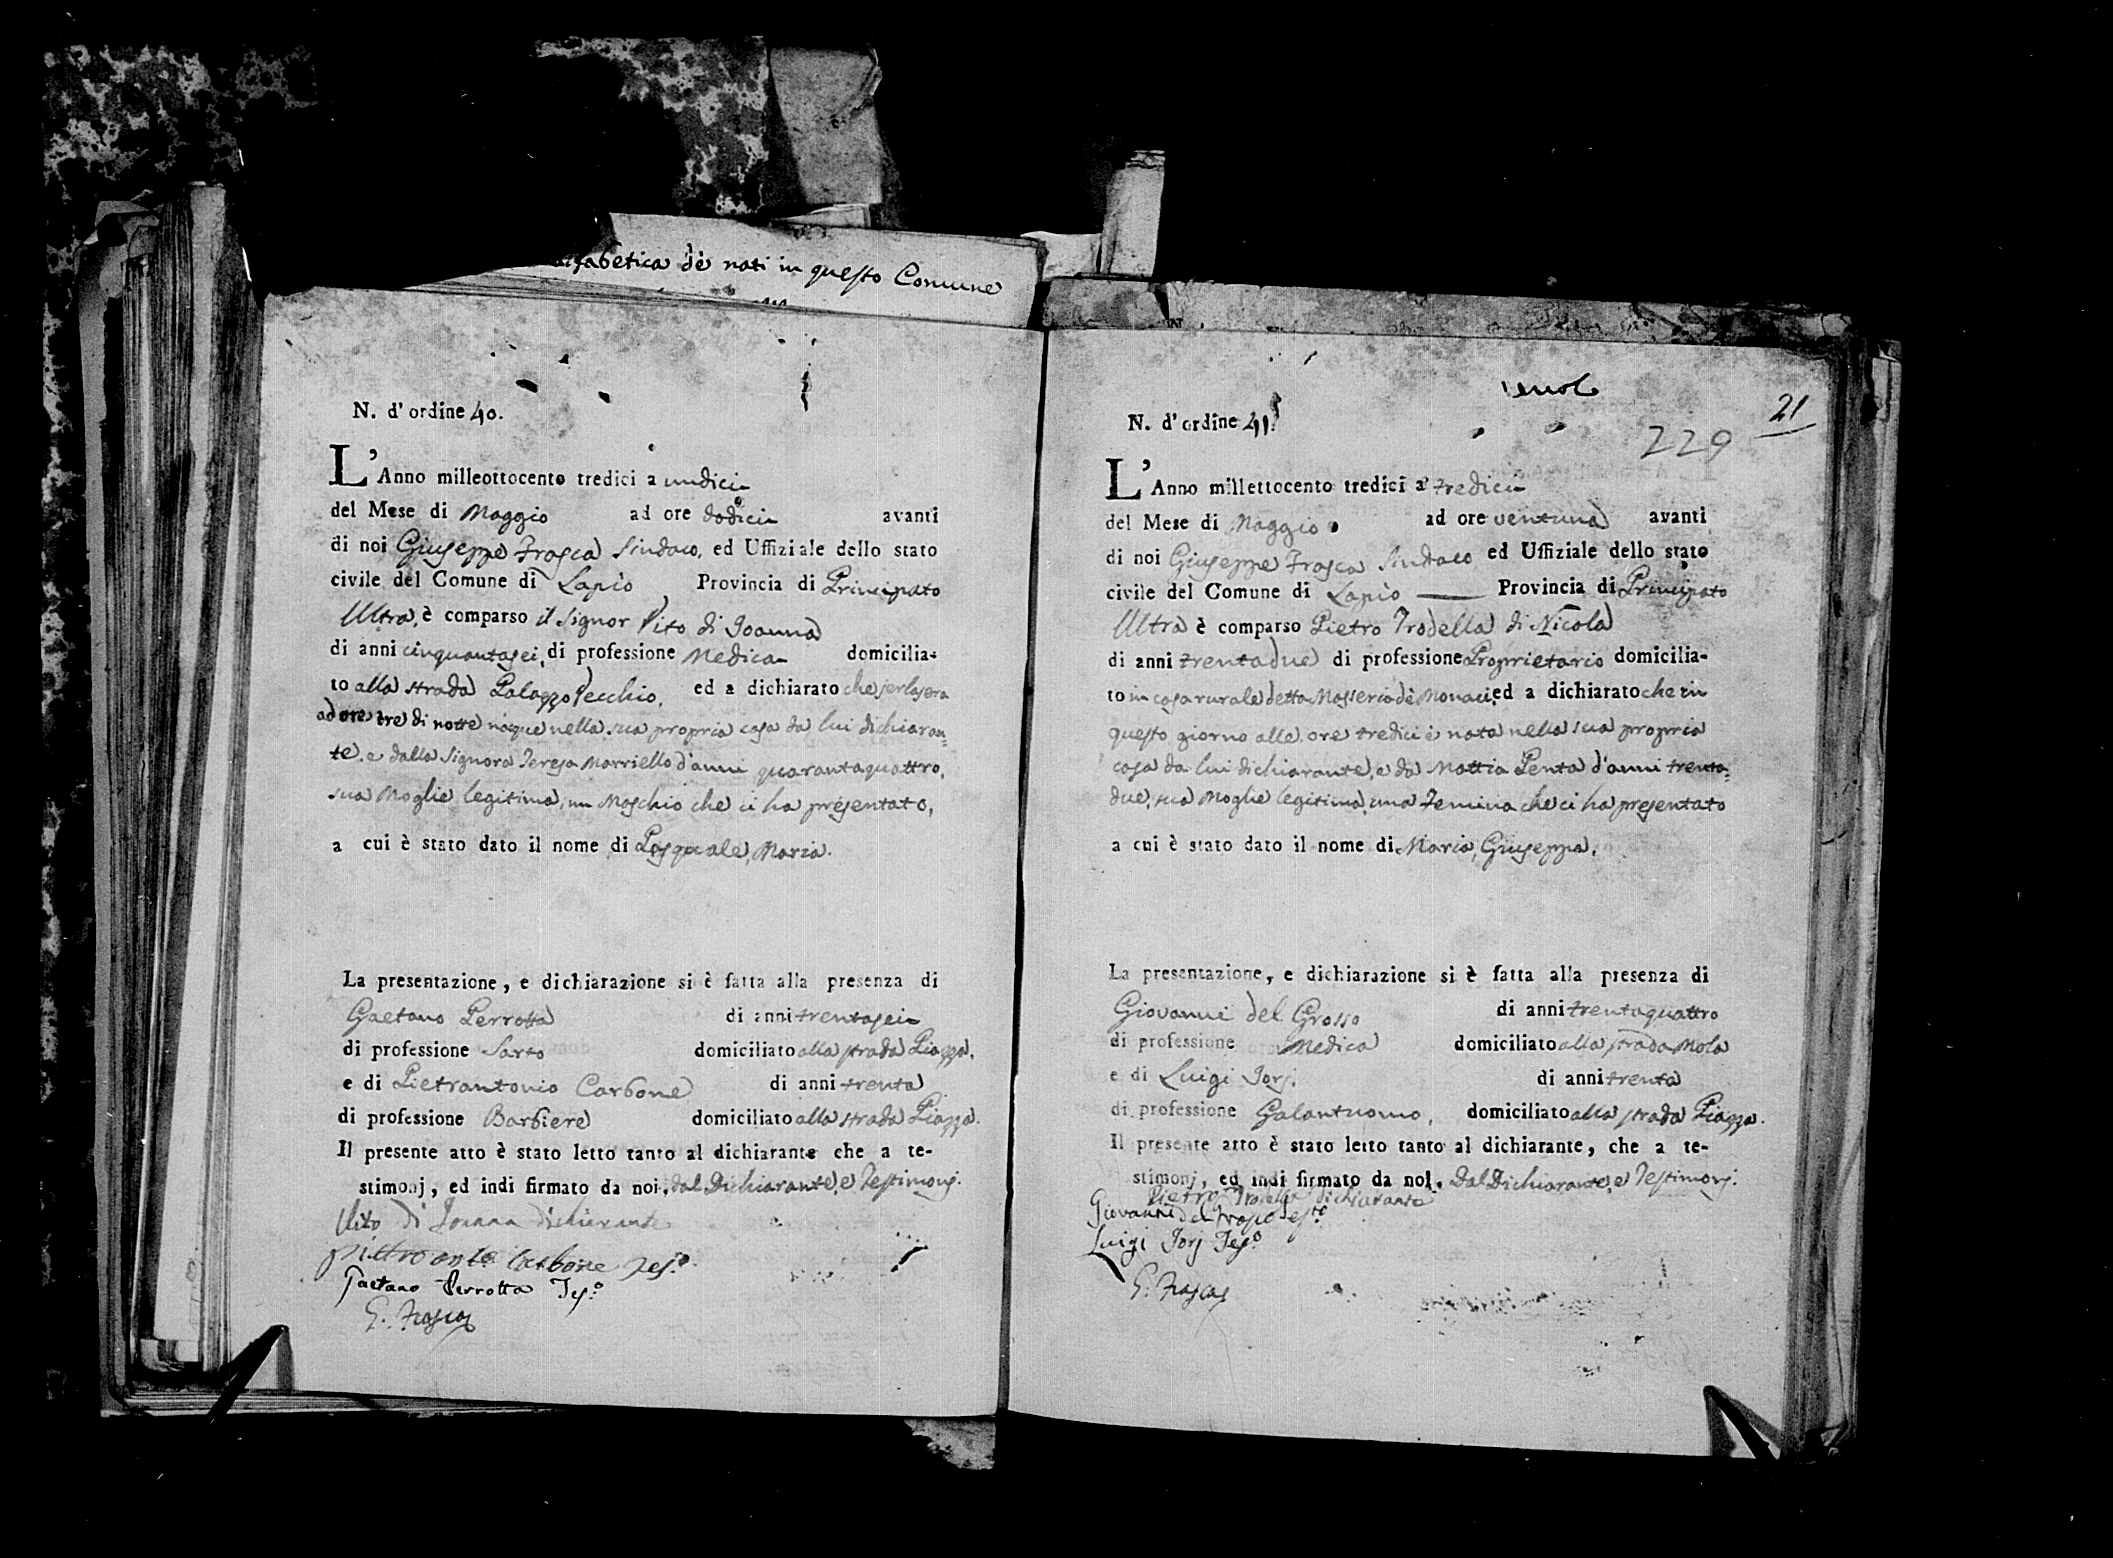 alfabetica dè nati in questo Comune
N. d'ordine 40.
L'Anno milleottocento tredici a undici
del Mese di Maggio ad ore dodici avanti
di noi Giuseppe Frasca Sindaco, ed Uffiziale dello stato
civile del Comune di Lapio, Provincia di Principato
Ultra, è comparso il Signor Vito di Joanna
di anni cinquantasei, di professione Medica domicilia-
to alla strada Palazzo Vecchio, ed a dichiarato che jerlasera
ad ore tre di notte nacque nella sua propria casa da lui dichiaran=
te, e dalla Signora Teresa Marriello d'anni quarantaquattro,
sua Moglie legitima, un Maschio che ci ha presentato,
a cui è stato dato il nome di Pasquale, Maria.
La presentazione, e dichiarazione si è fatta alla presenza di
Gaetano Perrotta di anni trentasei
di professione Sarto domiciliato alla strada Piazza,
e di Pietrantonio Carbone di anni trenta
di professione Barbiere domiciliato alla strada Piazza.
Il presente atto è stato letto tanto al dichiarante che a te-
stimonj, ed indi firmato da noi, dal Dichiarante, e Testimonj.
Vito di Joanna dichiarante
pietro anto carbone Tes.o
Gaetano Perrotta Tes.o
G. Frasca
21
229
N. d'ordine 41.
L'Anno millettocento tredici a tredici
del Mese di Maggio ad ore ventuna avanti
di noi Giuseppe Frasca Sindaco ed Uffiziale dello stato
civile del Comune di Lapio Provincia di Principato
Ultra è comparso Pietro Trodella di Nicola
di anni trentadue di professione Proprietario domicilia-
to in casa rurale detta Masseria dè Monaci, ed a dichiarato che in
questo giorno alle ore tredici è nata nella sua propria
casa da lui dichiarante, e da Mattia Penta d'anni trenta=
due, sua Moglie legitima, una Femina che ci ha presentato
a cui è stato dato il nome di Maria, Giuseppa.
La presentazione, e dichiarazione si è fatta alla presenza di
Giovanni del Grosso di anni trentaquattro
di professione Medica domiciliato alla strada Mola
e di Luigi Jorj. di anni trenta
di professione Galantuomo, domiciliato alla strada Piazza.
Il presente atto è stato letto tanto al dichiarante, che a te-
stimonj, ed indi firmato da noi, dal Dichiarante, e Testimonj.
Pietro Trodella dichiarante
Giovanni del Grosso Tes.to
Luigi Jorj Tes.o
G. Frasca